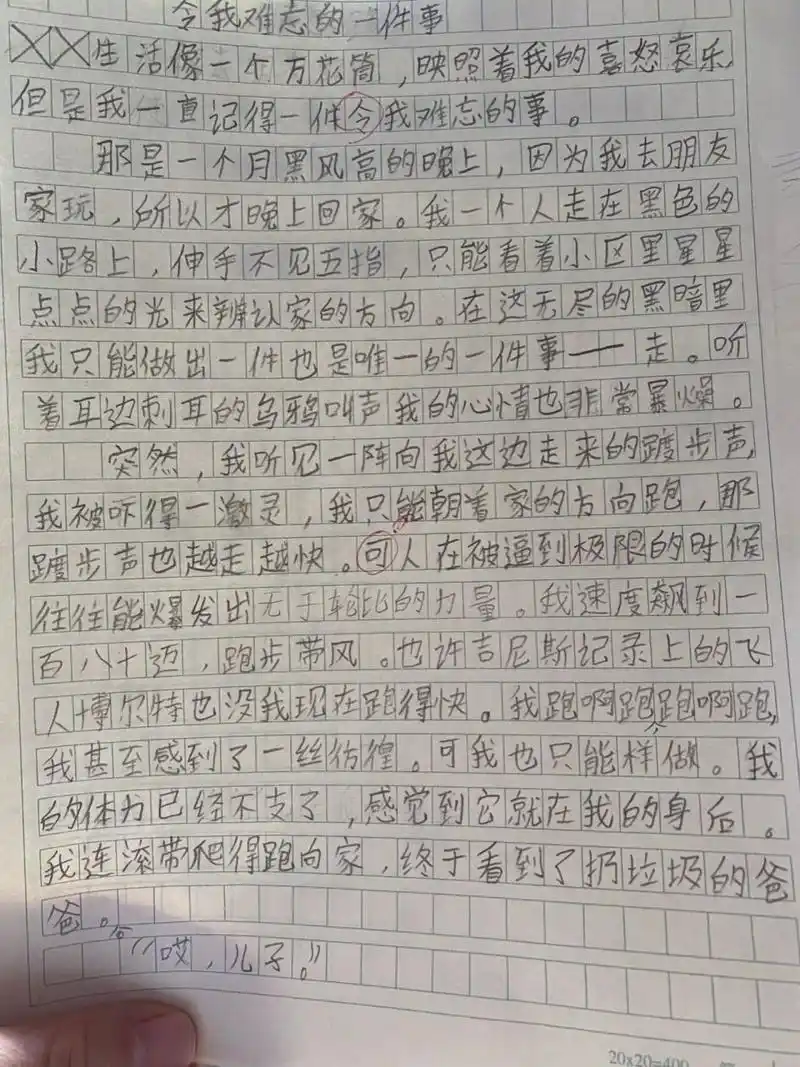 令我难忘的一件事
生活像一个万花筒，映照着我的喜怒哀乐，
但是我一直记得一件令我难忘的事。
那是一个月黑风高的晚上，因为我去朋友
家玩，所以才晚上回家。我一个人走在黑色的
小路上，伸手不见五指，只能看着小区里星星
点点的光来辨认家的方向。在这无尽的黑暗里
我只能做出一件也是唯一的一件事——走。听
着耳边刺耳的乌鸦叫声我的心情也非常暴燥。
突然，我听见一阵向我这边走来的踱步声，
我被吓得一激灵，我只能朝着家的方向跑，那
踱步声也越走越快。可人在被逼到极限的时候
往往能爆发出无于轮比的力量。我速度飙到一
百八十迈，跑步带风。也许吉尼斯记录上的飞
人博尔特也没我现在跑得快。我跑啊跑跑啊跑，
我甚至感到了一丝彷徨。可我也只能样做。我
的体力已经不支了，感觉到它就在我的身后。
我连滚带爬得跑向家，终于看到了扔垃圾的爸
爸。
“哎，儿子。”
20x20=400